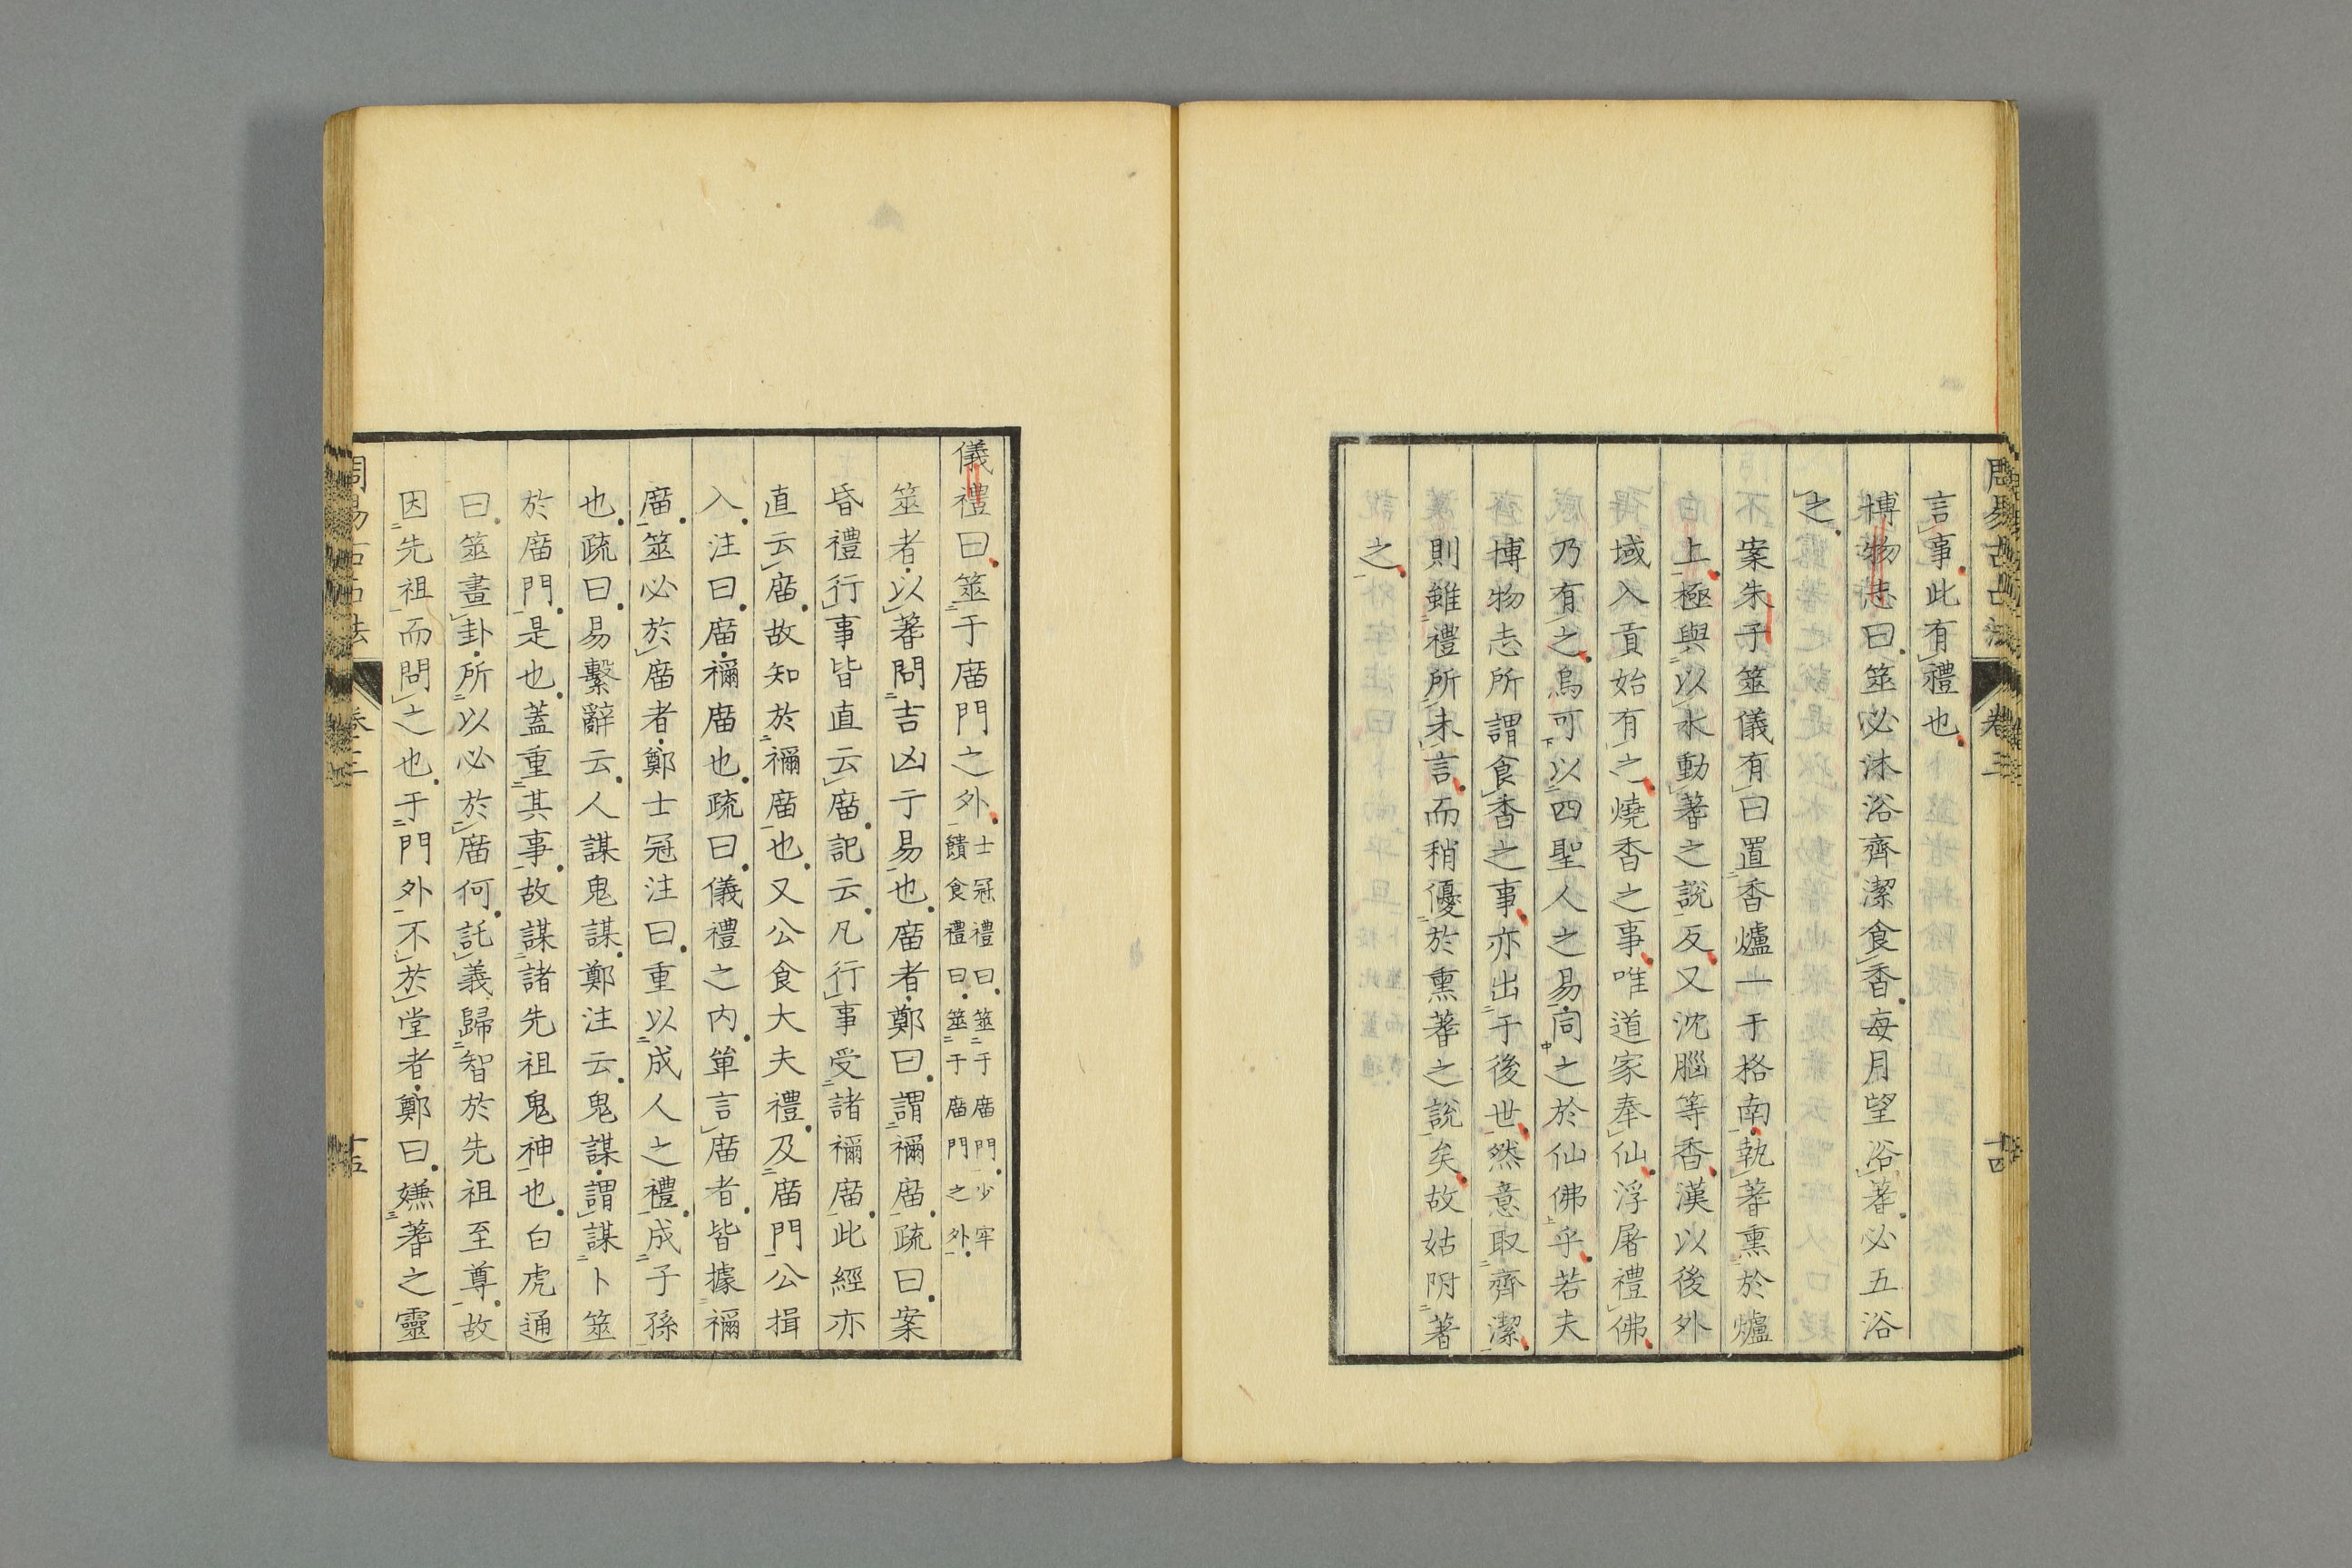 周易古占法 卷三 十四
言事此有禮也
博物志曰筮必沐浴齊潔食香每月望浴蓍必五浴
之
案朱子筮儀有曰置香爐一于格南執蓍熏於爐
上極與以水動蓍之說反又沈腦等香漢以後外
域入貢始有之燒香之事唯道家奉仙浮屠禮佛
乃有之烏可以四聖人之易同之於仙佛乎若夫
博物志所謂食香之事亦出于後世然意取齊潔
則雖禮所未言而稍優於熏蓍之說矣故姑附著
之
儀禮曰筮于庿門之外士冠禮曰筮于庿門少牢
饋食禮曰筮于庿門之外
筮者以蓍問吉凶于易也庿者鄭曰謂禰庿疏曰案
昏禮行事皆直云庿記云凡行事受諸禰庿此經亦
直云庿故知於禰庿也又公食大夫禮及庿門公揖
入注曰庿禰庿也疏曰儀禮之內單言庿者皆據禰
庿筮必於庿者鄭士冠注曰重以成人之禮成子孫
也疏曰易繫辭云人謀鬼謀鄭注云鬼謀謂謀卜筮
於庿門是也蓋重其事故謀諸先祖鬼神也白虎通
曰筮畫卦所以必於庿何託義歸智於先祖至尊故
因先祖而問之也于門外不於堂者鄭曰嫌蓍之靈
周易古占法 卷三 十五